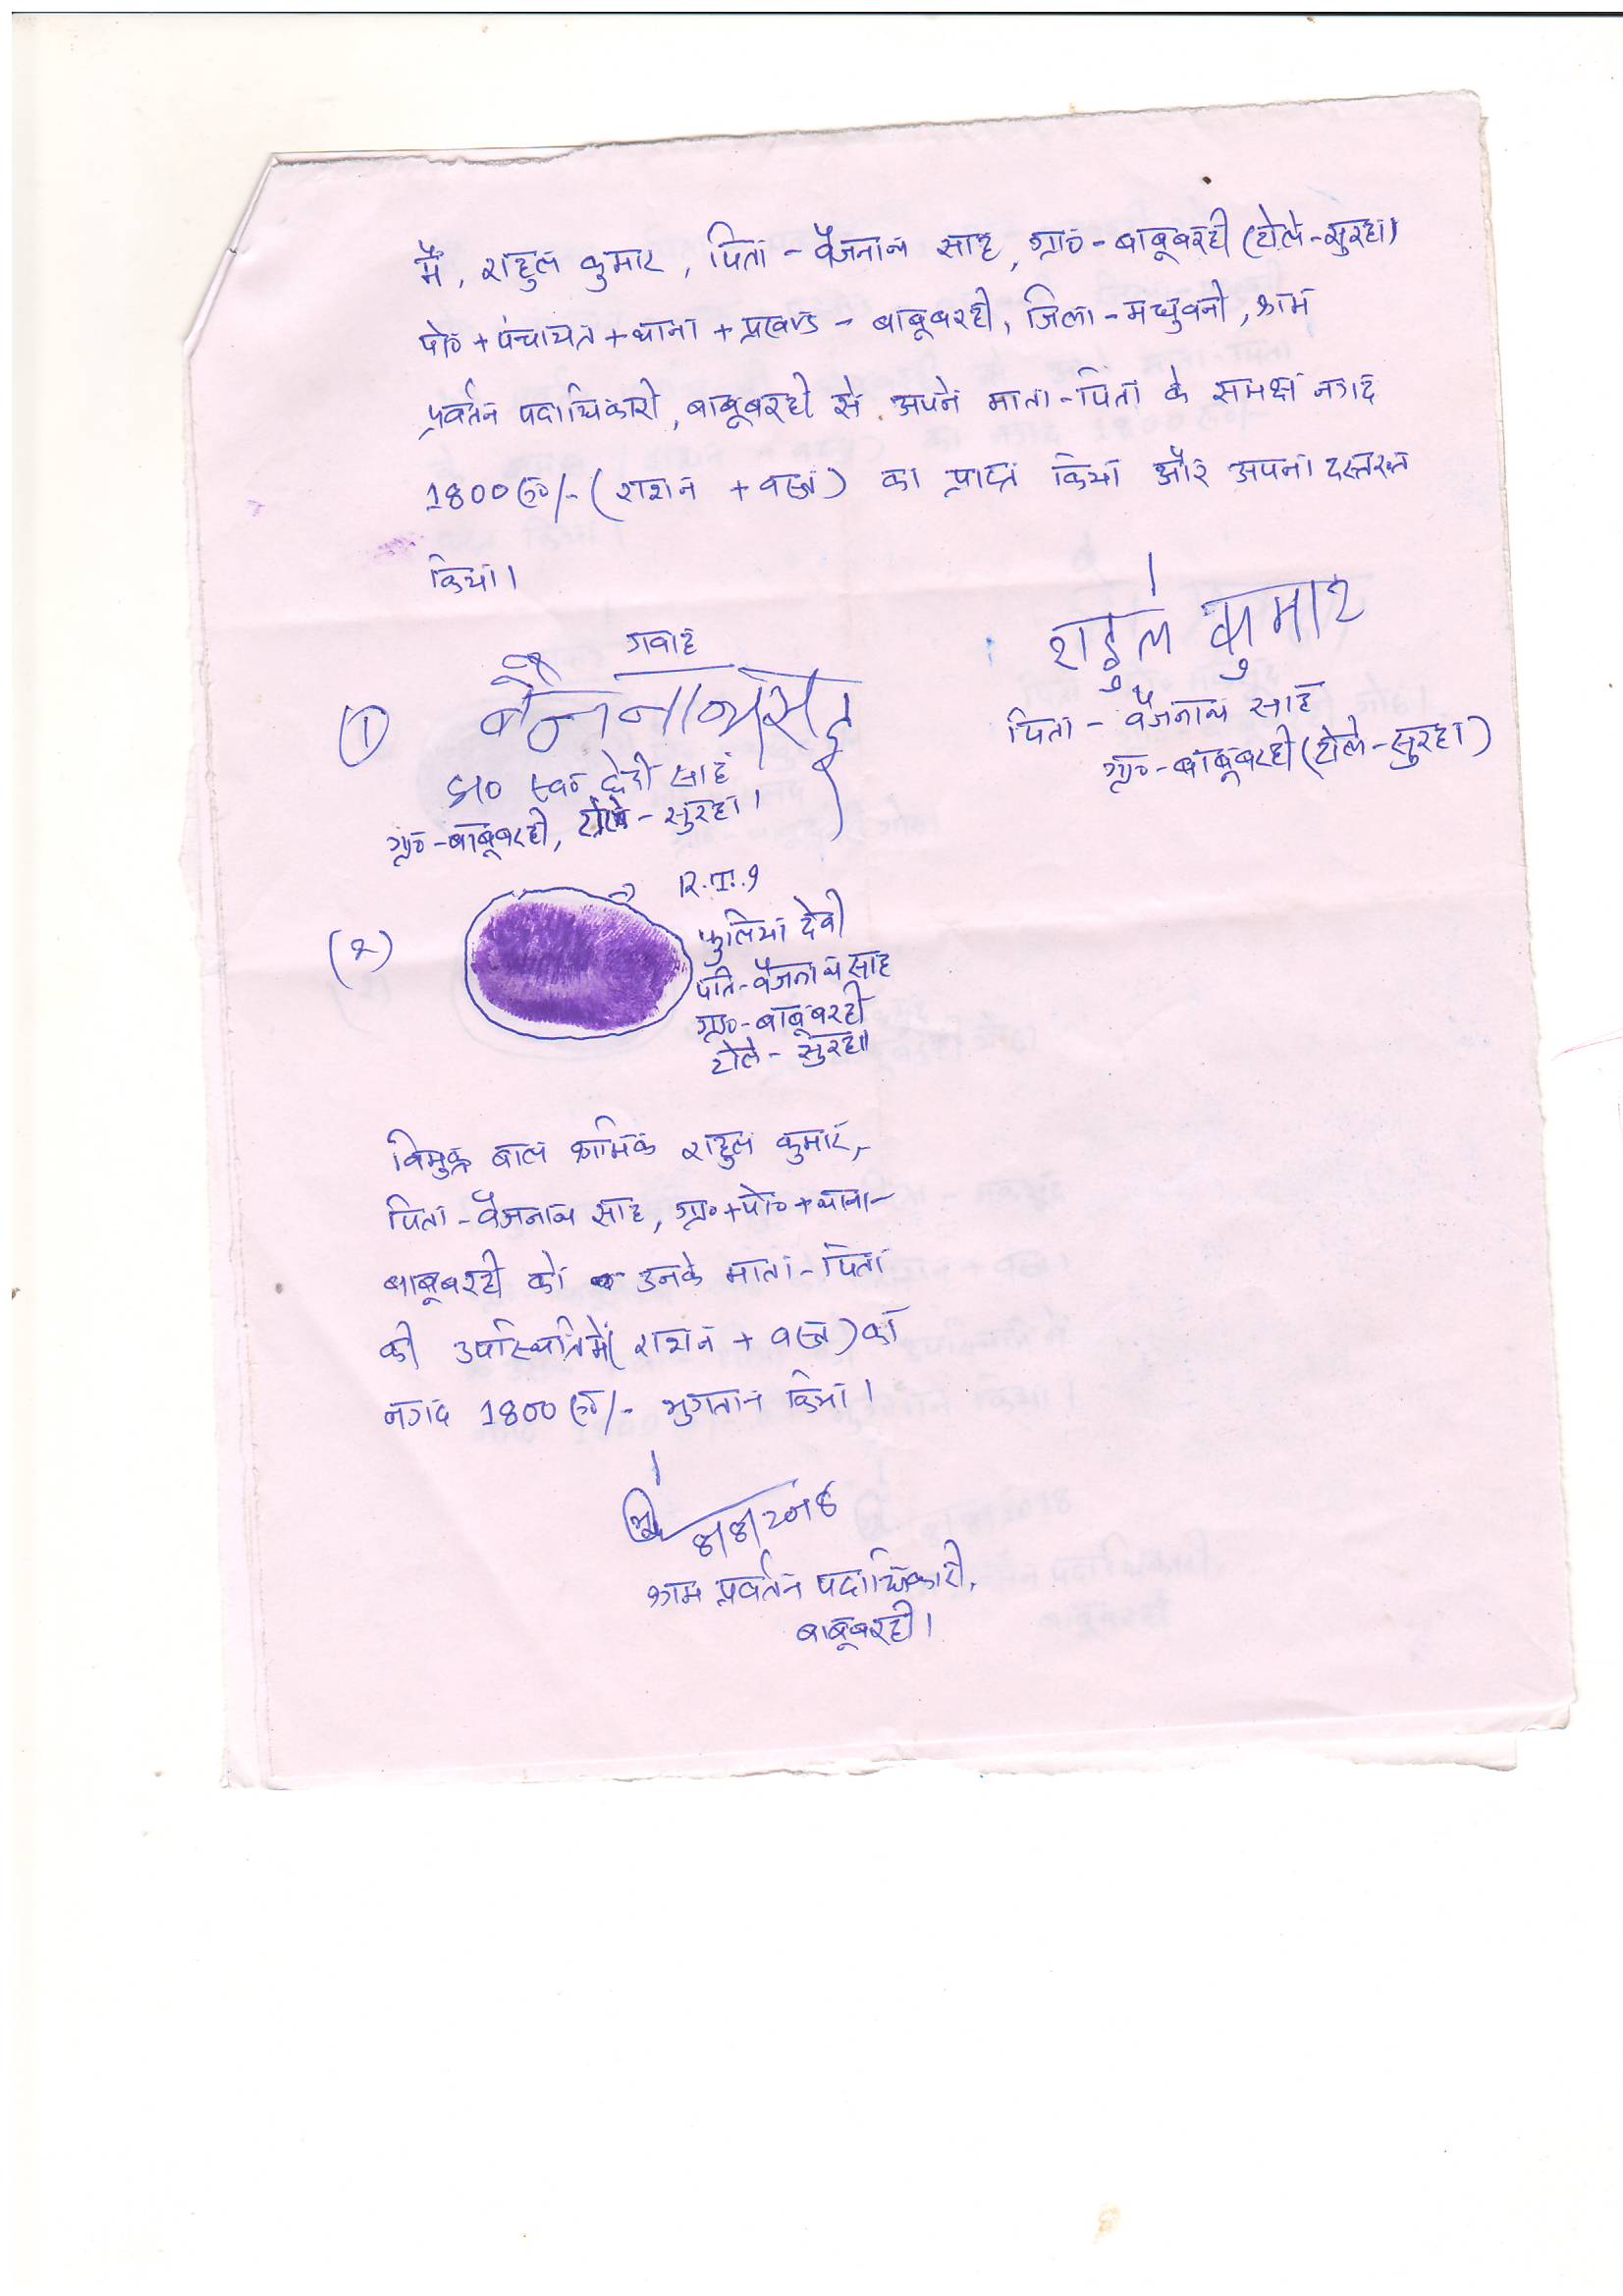 मैं, राहुल कुमार, पिता - वैजनाथ साह, ग्रा० - बाबूबरही (टोले - सुरहा)
पो० + पंचायत + थाना + प्रखण्ड - बाबूबरही, जिला - मधुबनी, श्रम
प्रवर्तन पदाधिकारी, बाबूबरही से अपने माता-पिता के समक्ष नगद
1800रु०/- (राशन + वस्त्र) का प्राप्त किया और अपना दस्तखत
किया।
गवाह
राहुल कुमार
① बैजनाथ साह
पिता - वैजनाथ साह
ग्रा० - बाबूबरही (टोले - सुरहा)
S/o स्व० साह
ग्रा० - बाबूबरही, टोले - सुरहा।
R.T.I
(2) फुलिया देवी
पति - वैजनाथ साह
ग्रा० - बाबूबरही
टोले - सुरहा
विमुक्त बाल श्रमिक राहुल कुमार,
पिता - वैजनाथ साह, ग्रा० + पो० + थाना -
बाबूबरही को उनके माता-पिता
की उपस्थिति में (राशन + वस्त्र) का
नगद 1800रु०/- भुगतान किया।
श्रम प्रवर्तन पदाधिकारी,
बाबूबरही।